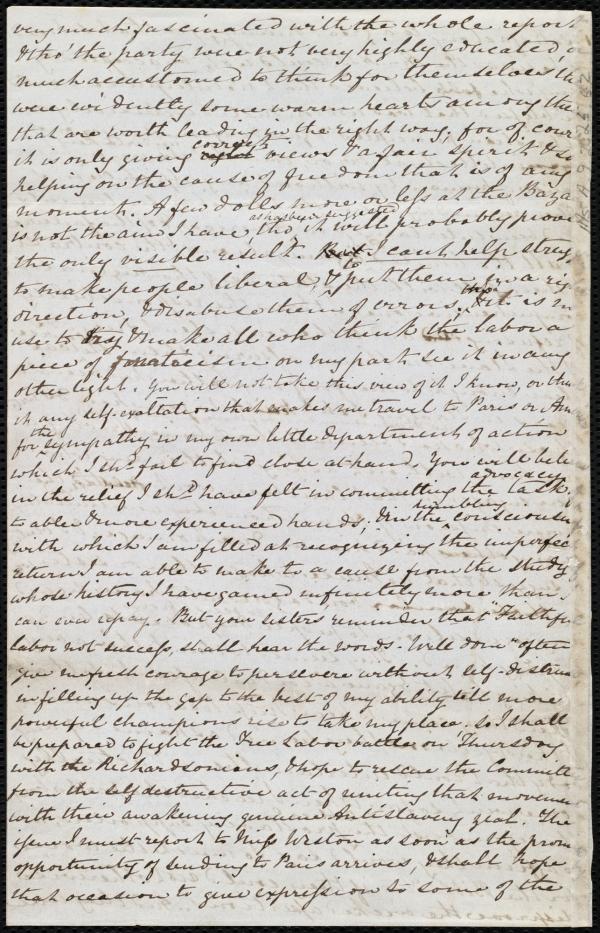 very much fascinated with the whole report
& tho' the party were not very highly educated, or
much accustomed to think for themselves th
were evidently some warm hearts among the
that are worth leading in the right way, for of cour
it is only giving correct right views & a fair spirit & so
helping on the cause of freedom that is of any
moment. A few dolls more or less at the Baza
as has been suggested
is not the aim I have, tho' it will probably prove
the only visible result. But I can't help strug
to make people liberal, & to put them in a rig
direction, & disabuse them of errors, tho' it is in
use to try & make all who think the labor a
piece of fanaticism on my part see it in any
other light. You will not take this view of it I know, or thin
it any self-exaltation that makes me travel to Paris or Am
for the sympathy in my own little department of action
which I shd. fail to find close at hand. You will beli
in the relief I shd. have felt in committing the advocacy task
to abler & more experienced hands; & in the humbling consciousn
with which I am filled at recognizing the imperfec
return I am able to make to a cause from the study
whose history I have gained infinitely more than
can ever repay. But your sisters reminder that "Faithfu
labor not success, shall hear the words. Well done" often
give me fresh courage to persevere without self-distrus
in filling up the gap to the best of my ability till more
powerful champions rise to take my place. so I shall
be prepared to fight the Free Labor battle on Thursday
with the Richardsonians, & hope to rescue the Committe
from the self destructive act of uniting that movemen
with their awakening genuine Antislavery zeal. The
issue I must report to Miss Weston as soon as the prom
opportunity of sending to Paris arrives, & shall hope
that occasion to give expression to some of the